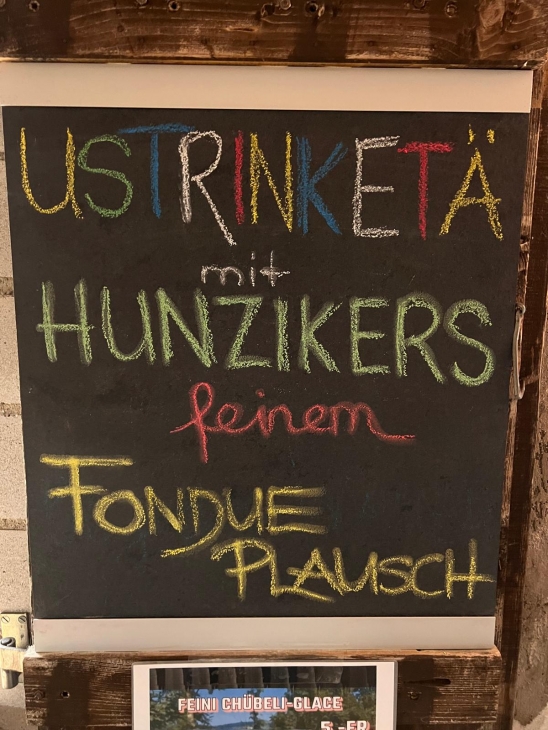 USTRINKETÄ
mit
HUNZIKERS
feinem
FONDUE
PLAUSCH
FEINI CHÜBELI-GLACE
5.-ER